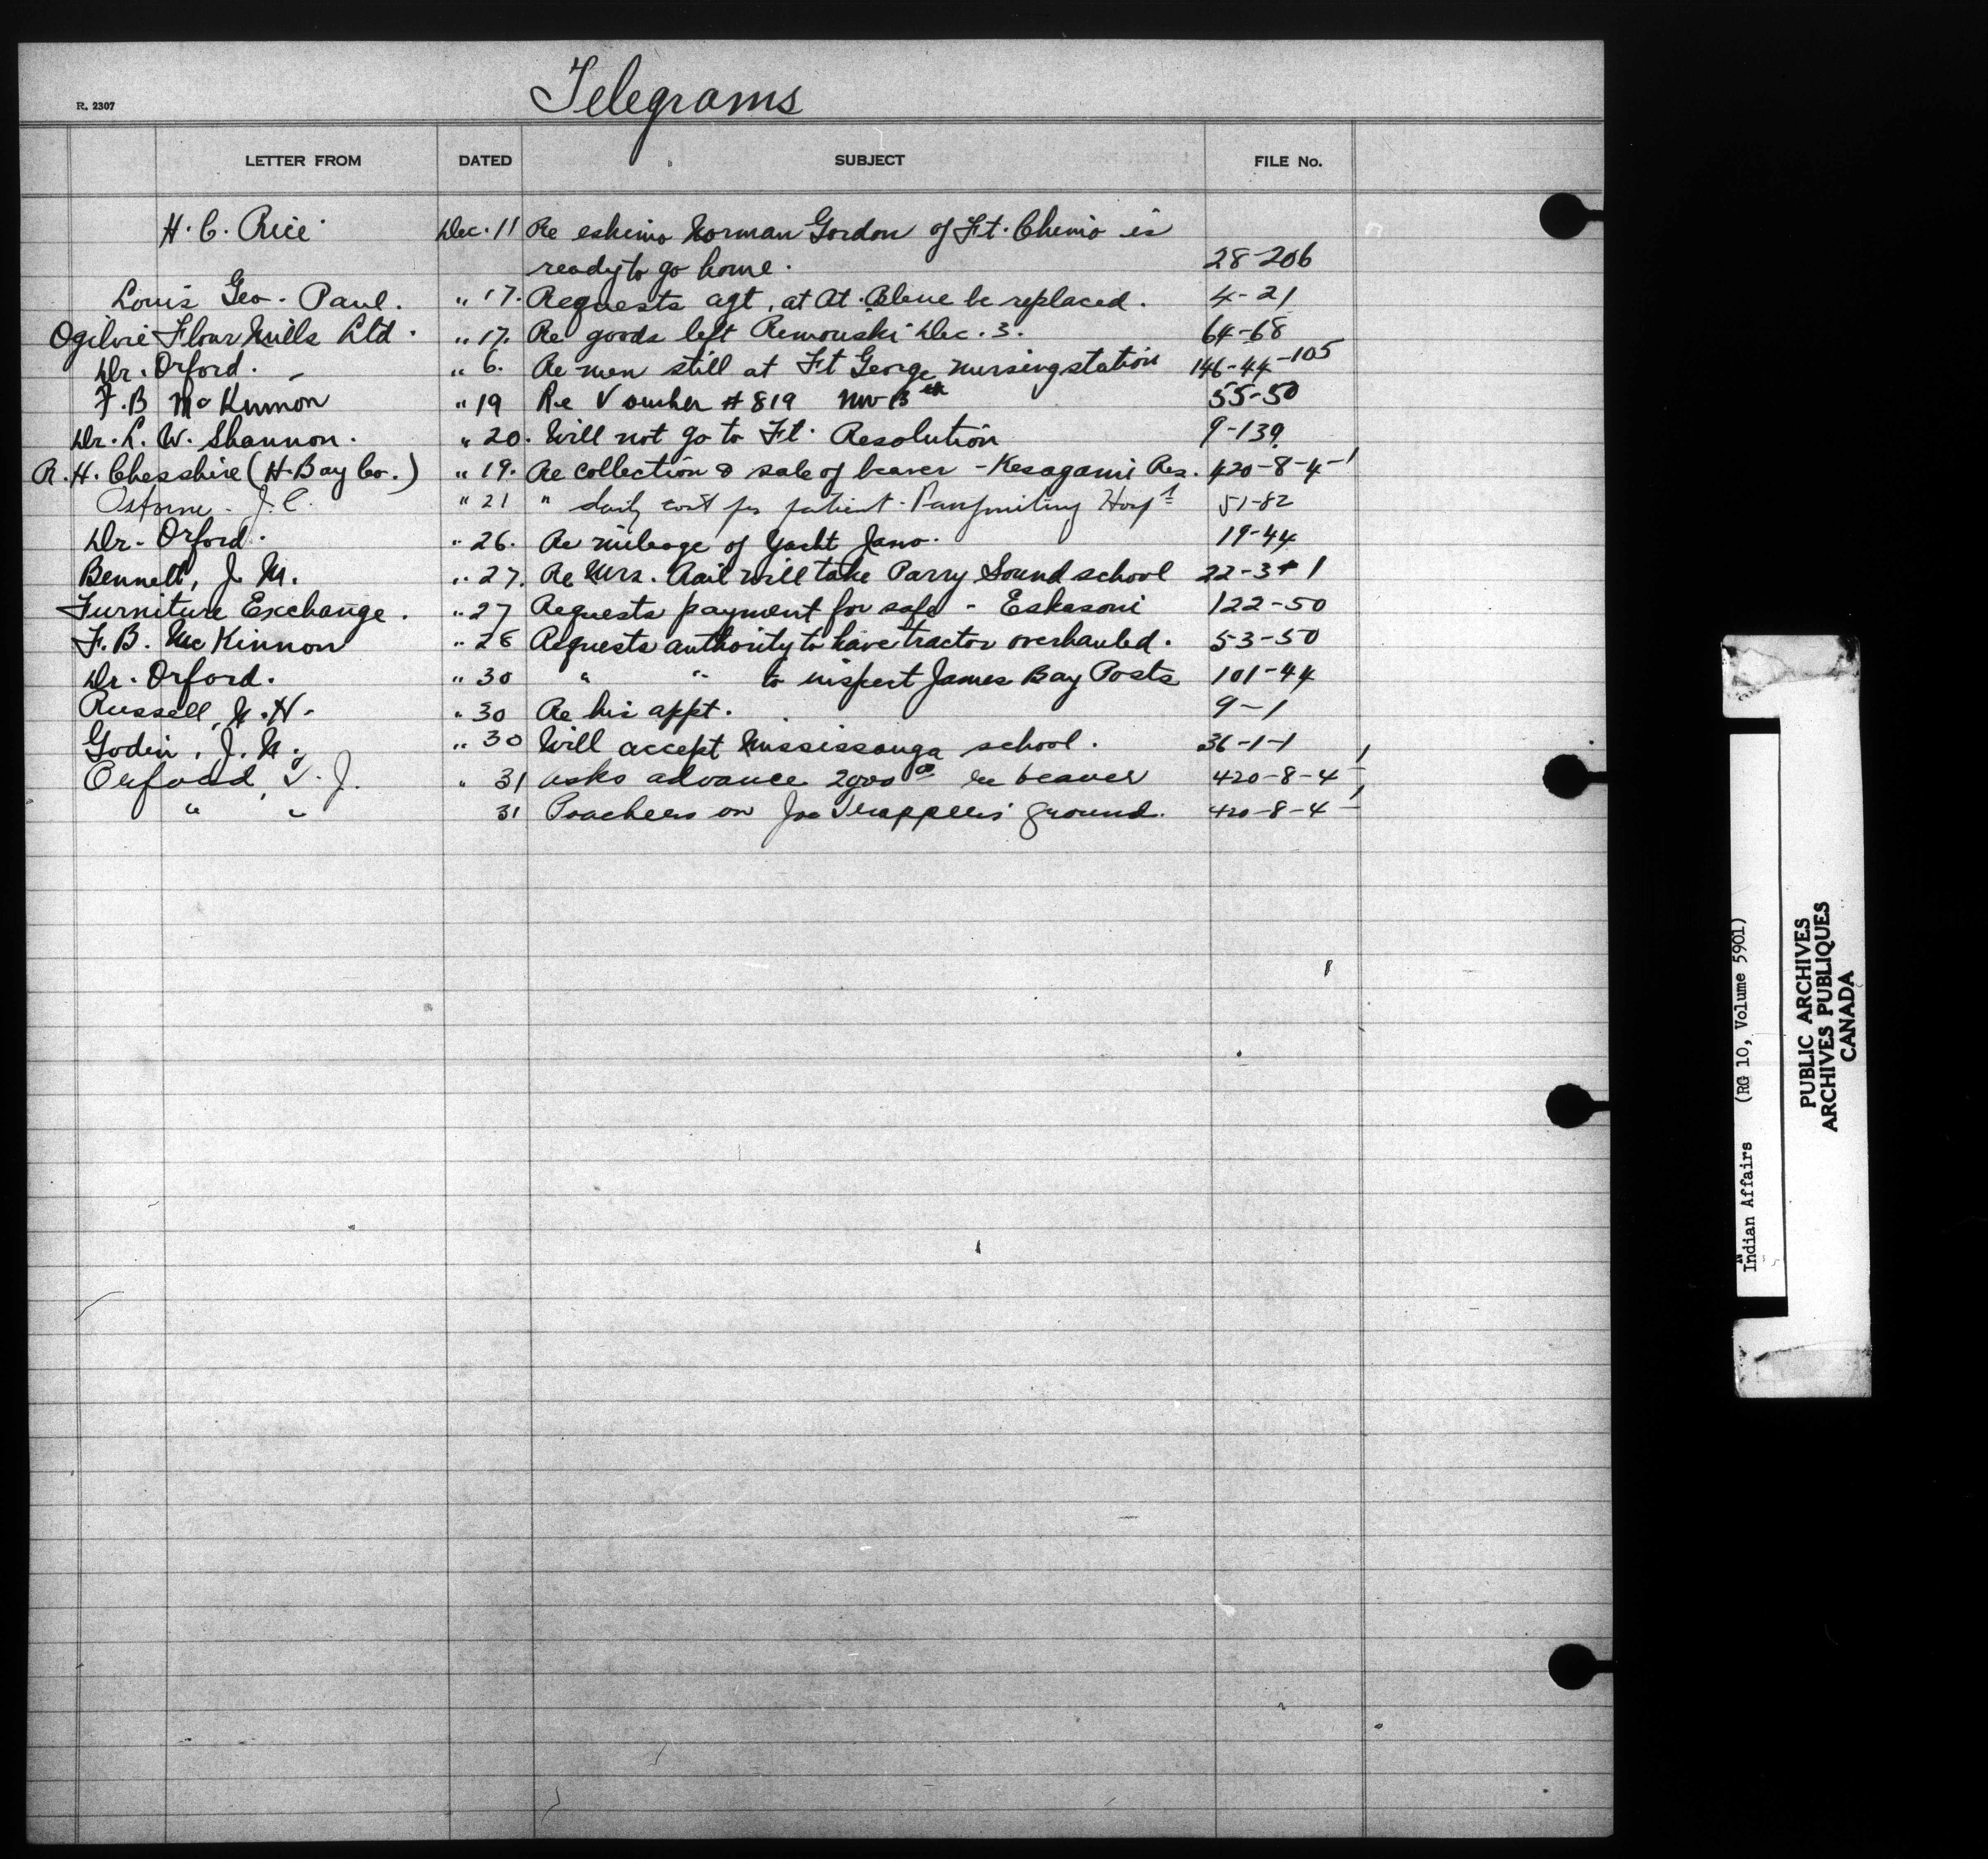 Telegrams
R. 2307
LETTER FROM DATED SUBJECT FILE No.
H. C. Rice Dec. 11 Re eskimo Norman Gordon of Ft. Chimo is
ready to go home. 28-206
Louis Geo. Paul. " 17. Requests agt. at At. be replaced. 4-21
Ogilvie Flour Mills Ltd. " 17. Re goods left Remouski Dec. 3. 64-68
Dr. Orford. - " 6. Re men still at Ft George nursing station 146-44-105
F. B McKinnon " 19 Re Voucher # 819 55-50
Dr. L. W. Shannon. " 20. Will not go to Ft. Resolution 9-139
R. H. Chesshire (H. Bay Co.) " 19. Re collection & sale of beaver - Kesagami Res. 420-8-4-1
Osborne - J. C. " 21 " daily cost per patient - Hosp 51-82
Dr. Orford. " 26. Re mileage of Yacht Jano. 19-44
Bennett, J. M. " 27. Re Mrs. Rail will take Parry Sound school 22-3-1
Furniture Exchange. " 27 Requests payment for safe - Eskasoni 122-50
F. B. McKinnon " 28 Requests authority to have tractor overhauled. 53-50
Dr. Orford. " 30 " " to inspect James Bay Posts 101-44
Russell, N. H. " 30 Re his appt. 9-1
Godin, J. N. " 30 Will accept Mississauga school. 36-1-1
Orford, T. J. " 31 asks advance 2000 00 re beaver 420-8-4-1
" " 31 Poachers on Joe Trappers' ground. 420-8-4-1
Indian Affairs (RG 10, Volume 5901)
PUBLIC ARCHIVES
ARCHIVES PUBLIQUES
CANADA